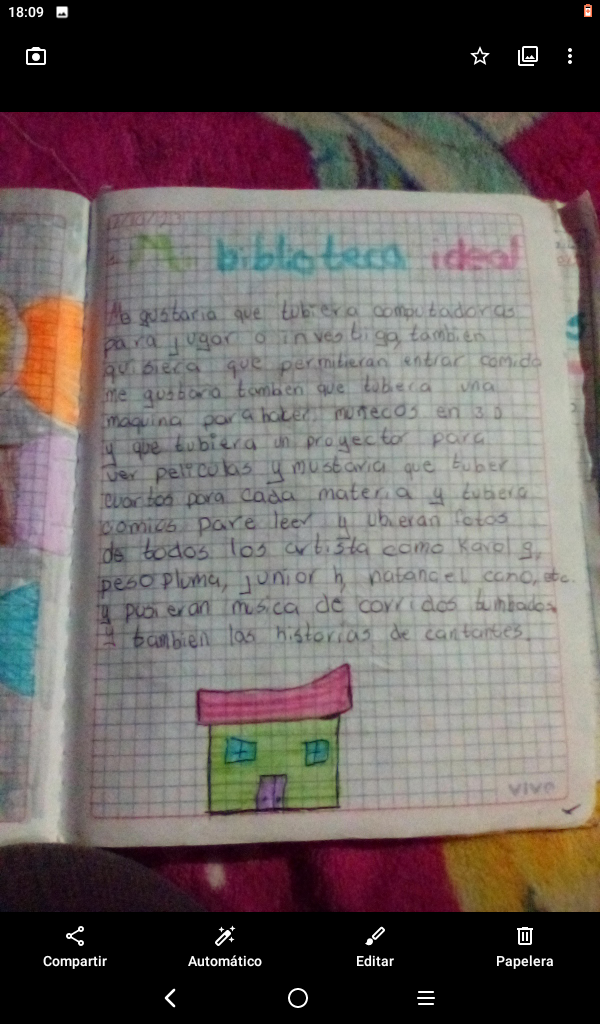 18:09
Mi biblioteca ideal
Me gustaria que tubiera computadoras
para jugar o investiga, tambien
quisiera que permitieran entrar comida
me gustara tamben que tubera una
maquina para hacer muñecos en 3D
y que tubiera un proyector para
ver peliculas y mustaria que tuber
cuartos para cada materia y tubera
comios pare leer y ubieran fotos
de todos los artista como Karol g,
peso pluma, junior h, natanael cano, etc.
y pusieran musica de corridos tumbados
y tambien las historias de cantantes.
VIVA
Compartir
Automático
Editar
Papelera